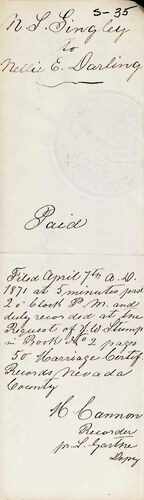 S-35
N. S. Singley
to
Nellie E. Darling
Paid
Filed April 7th A.D.
1871 at 5 minutes past
2 o'clock P.M. and
duly recorded at the
Request of J. W. Stump
in Book No 2 pages
50 Marriage Certif
Records Nevada
County
H Cannon
Recorder
pr. L. Garthe
Dpy